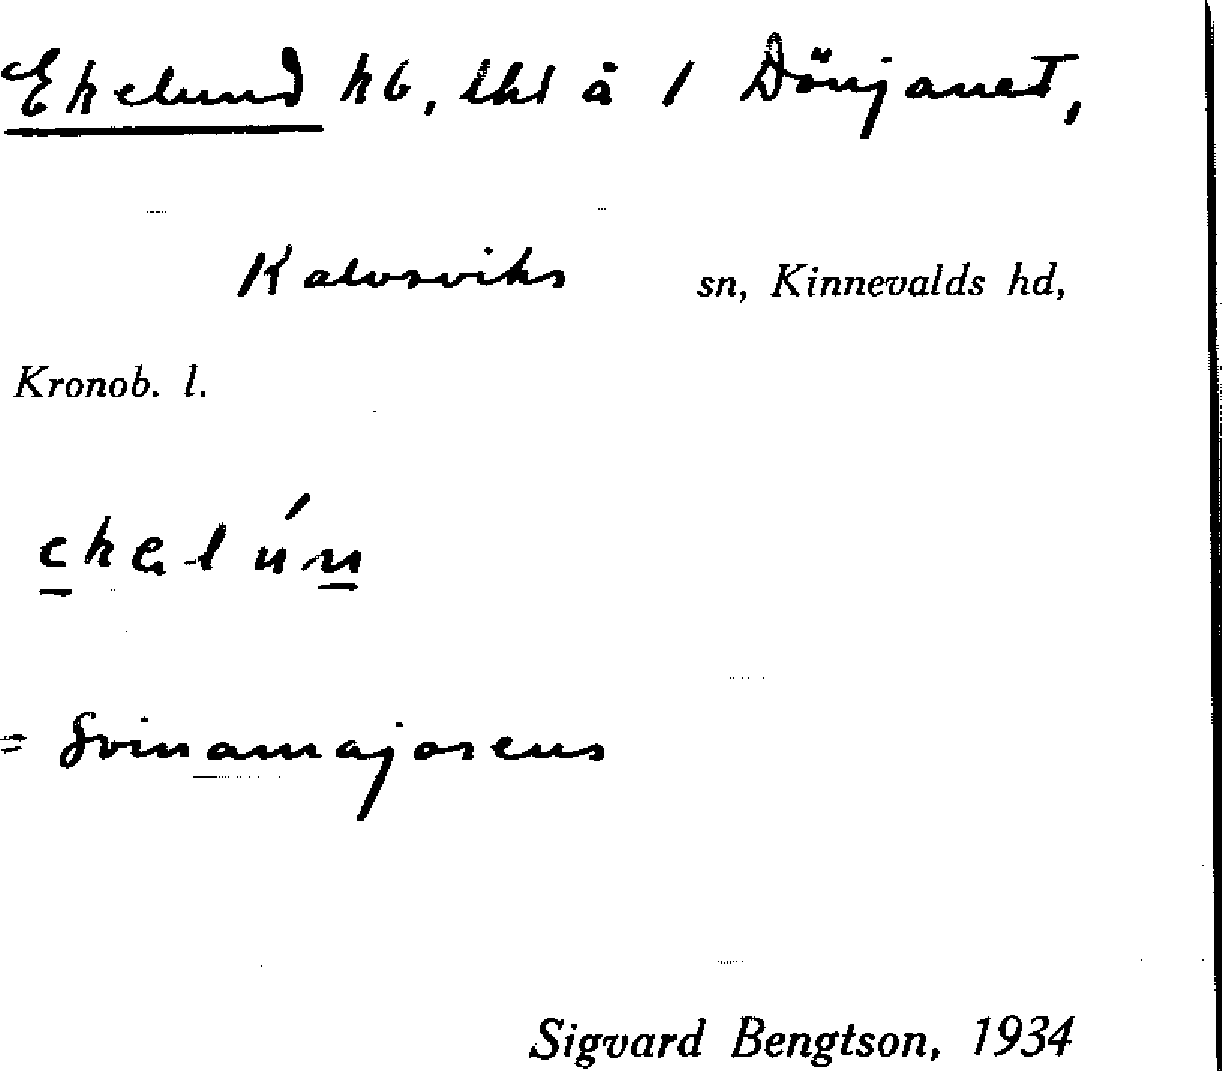 Ekelund hb, lht å 1 Dönjanet,
Kalvsviks sn, Kinnevalds hd,
Kronob. l.
ekəlún
= Svinamajasens
Sigvard Bengtson, 1934